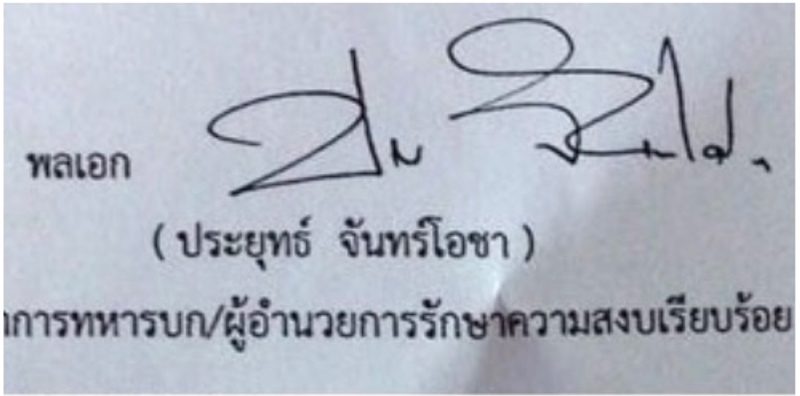 พลเอก
( ประยุทธ์ จันทร์โอชา )
การทหารบก/ผู้อำนวยการรักษาความสงบเรียบร้อย